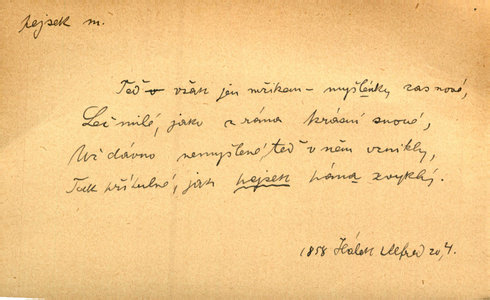 pejsek m.
Teď však jen mžikem - myšlénky zas nové,
Leč milé, jako z rána krásní snové,
Už dávno nemyšlené, teď v něm vznikly,
Tak přítulné, jak pejsek pána zvyklý.
1858 Hálek Alfred 20,4.